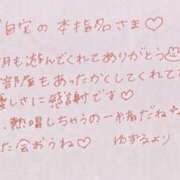 自宅の本指名さま♡
月も遊んでくれてありがとう
部屋もあたたかくしてくれて
優しさに感謝です♡
熱唱しちゃうの一緒だね
た会おうね♡ ゆずるより